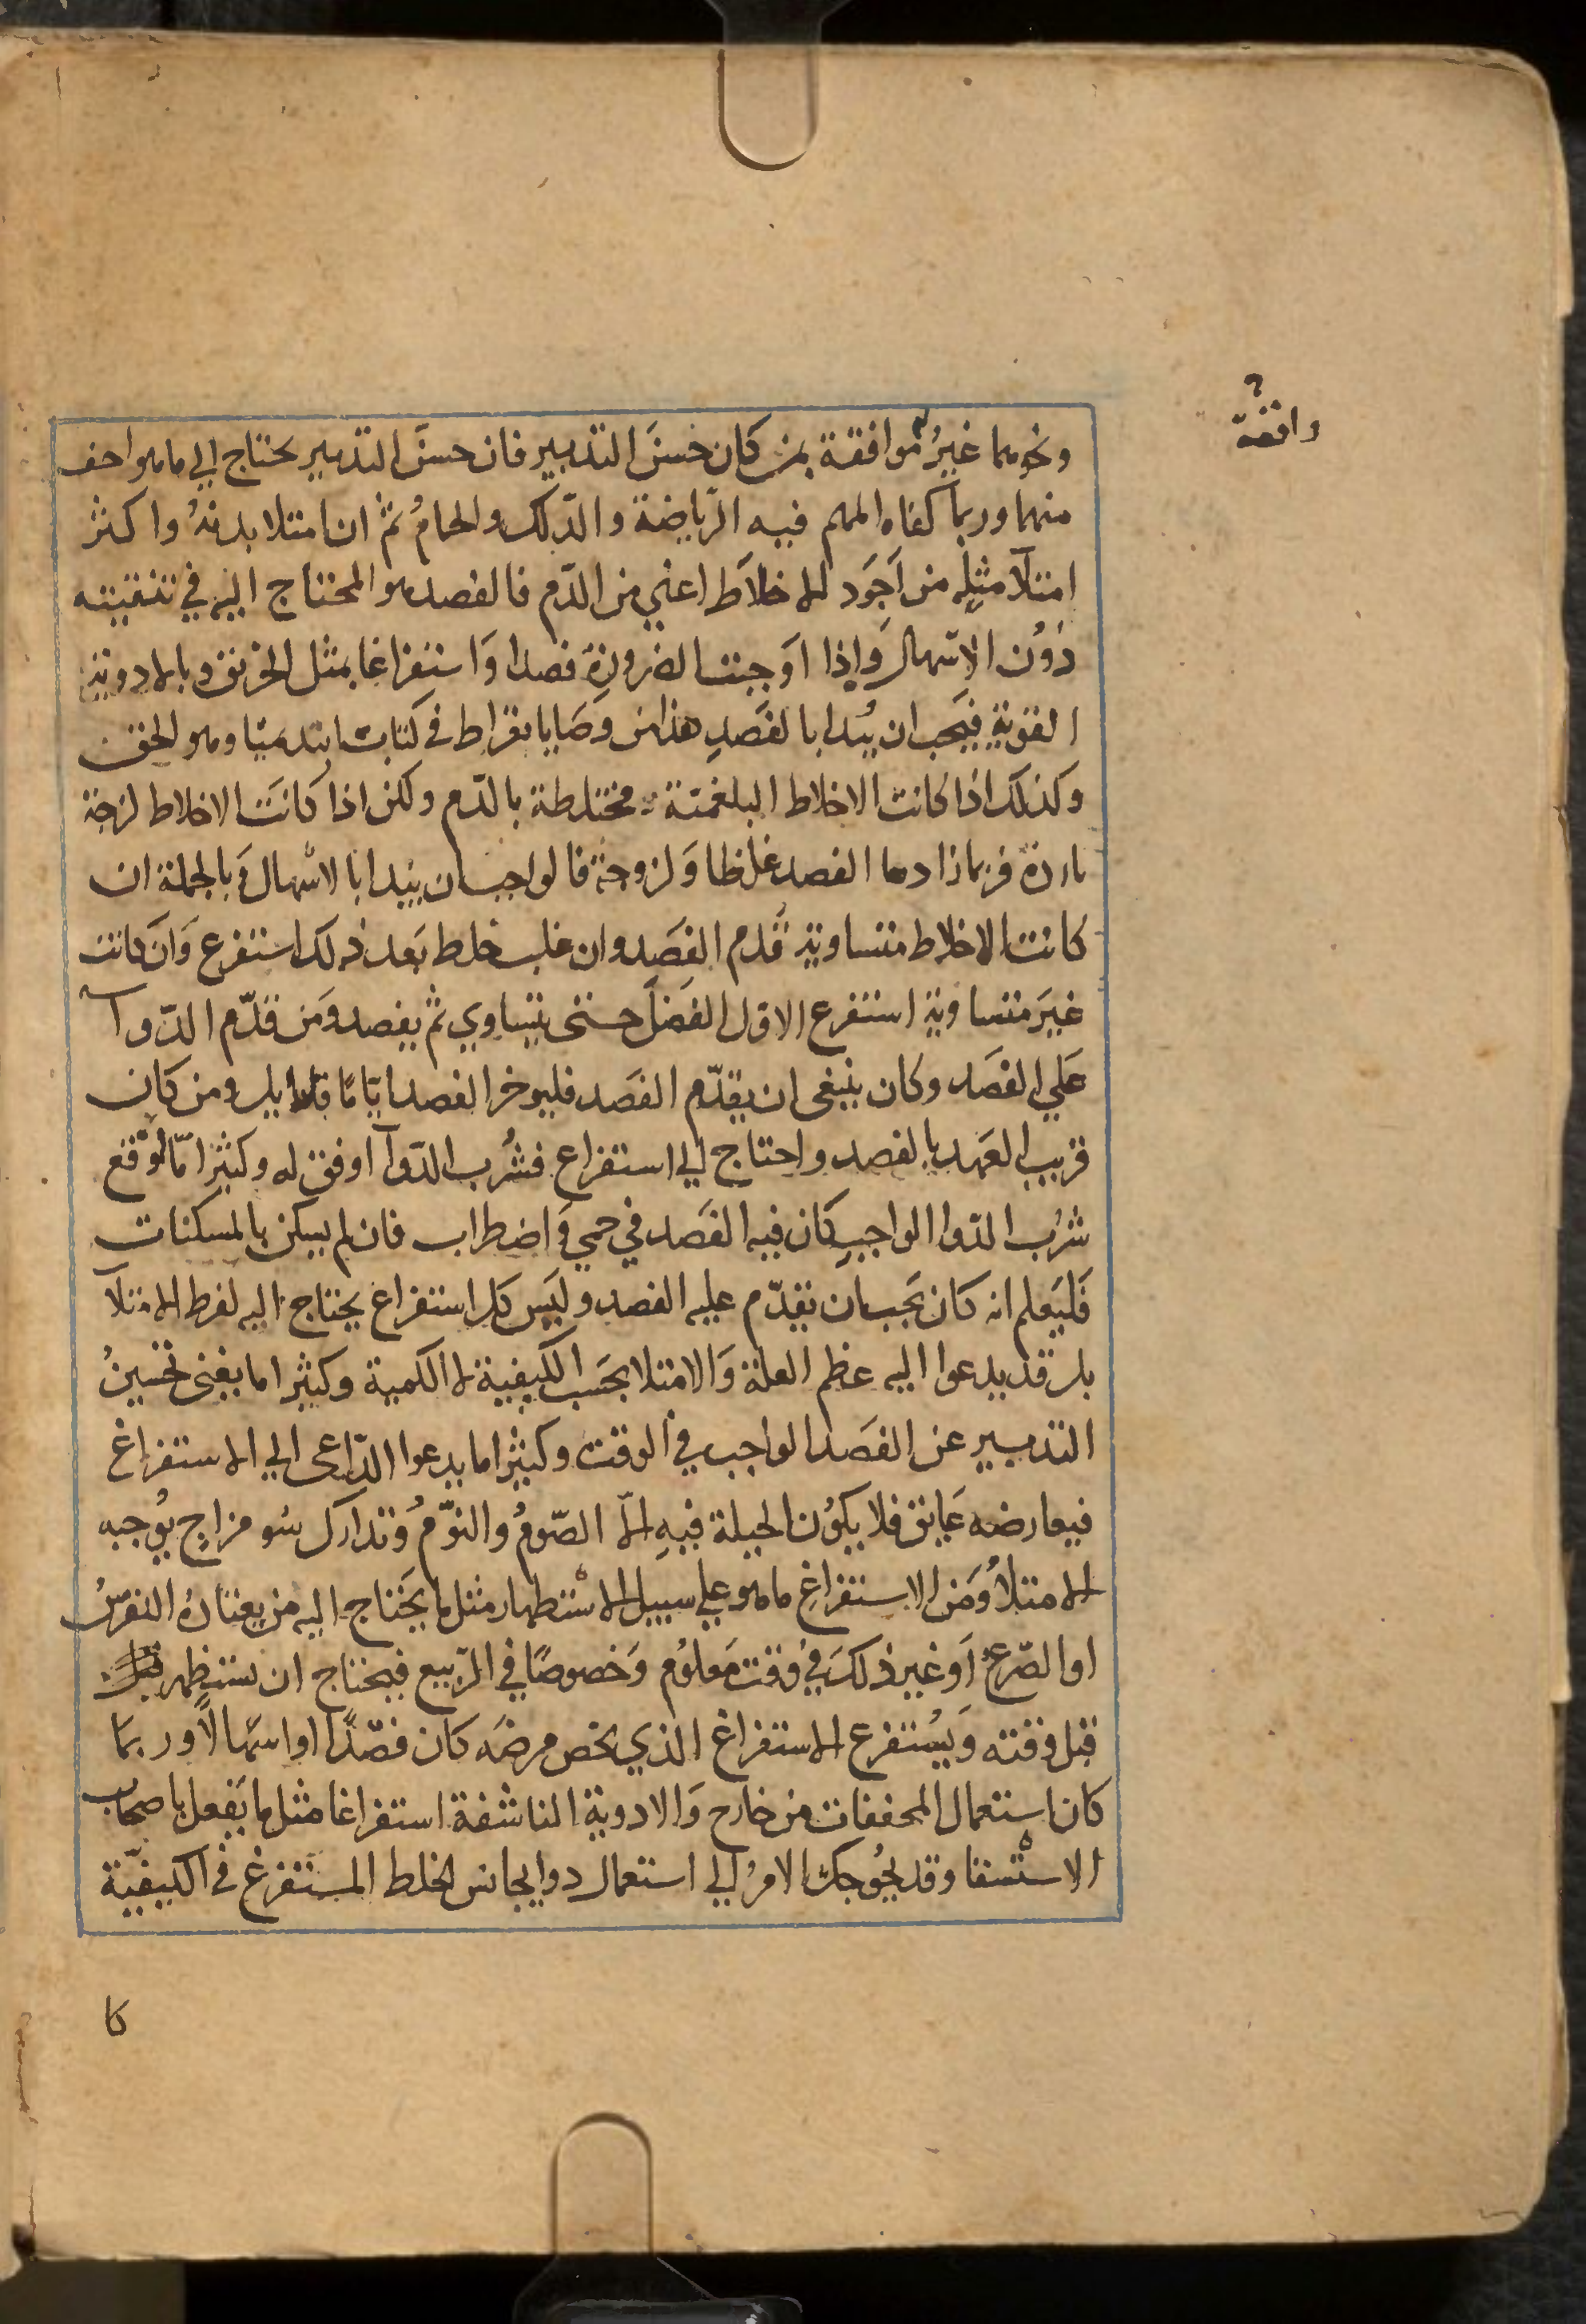 وافقة
ونحوهما غيرُ موافقة بمن كان حسنَ التدبير فان حسنَ التدبير يحتاج الي ما هو اخف
منهما وربما كفاه المهم فيه الرّياضة والدّلك والحمامُ ثمّ ان امتلا بدنهُ واكثر
امتلآ مثلِه من اَجوَد الاخلاَط اعني من الدّم فالفصد هو المحتاج اليه في تنقيته
دُوُن الاسّهال وَاِذا اوَجبت الضرورة فصدا وَاستفراغا بمثل الخربق وبالادوية
القوية فيَجب ان يُبدا بالفَصدِ هذا من وصَايا بقراط في كتاب ابيديميا وهو الحق
وكذلك اذا كانت الاخلاط البلغمية مختلطة بالدّم ولكن اذا كانَت الاخلاط لزجة
باردة فربما زادها الفصد غلظا وَلزوجة فالواجب ان يبُدا بالاسّهال وَبالجملة ان
كانت الاخلاط متساوية قُدم الفصَد وان غلب خلط بَعد ذلك استفرغ وَان كانت
غيرَ متساوية استفرغ الاوّل الفَضلَ حتى يتساوي ثم يفصد وَمَن قدّم الدّوآ
عَلي الفصَد وكان ينبغى ان يقدّم الفصَد فليوخر الفصد ايّامًا قلايل ومن كان
قريب العَهد بالفصد واحتاج الي استفراغ فشُرب الدّوآ اوفق له وكثيرا مّا اوَّقع
شرُب الدّوا الواجبِ كان فيه الفصَد في حمي وَاضطراب فان لم يسكن بالمسكنات
فَليَعلم انه كان يَجب ان يقدّم عليه الفصد وليَس كل استفراغ يحتاج اليه لفرط الامتلآ
بل قد يدعوا اليه عظم العلة وَالامتلا بحَسب الكيفية لا الكمية وكثيرا ما يغنى تحسينُ
التدبير عن الفصَد الواجب في الوقت وكثيرا ما يدعوا الدّاعى الي الاستفراغ
فيعارضه عَايق فلا يكوُن الحيلة فيهِ الاّ الصّومُ والنوّمُ وَتدارك سُو مزاجٍ يوُجبه
الامتلاُ وَمَن الاستفراغِ ما هو علي سبيل الاسّتظهار مثل ما يحَتاج اليه من يعتادُه النقرسُ
او الصّرع اَو غير ذلكَ في وقت مَعلوُم وَخصوصًا في الرّبيع فيحتاج ان يستظهر
قبل وقته وَيسُتفرغ الاستفراغ الذي يخص مرضَه كان فصّدًا او اسّهالاً وربما
كان استعمال المجففات من خارج وَالادوية الناشفة استفراغا مثل ما يَفعل باصحاب
الاستسّقا وقد يحُوجك الامرُ الي استعمال دوا يجانس الخلط المستَفرغ فى الكيفيّة
كا